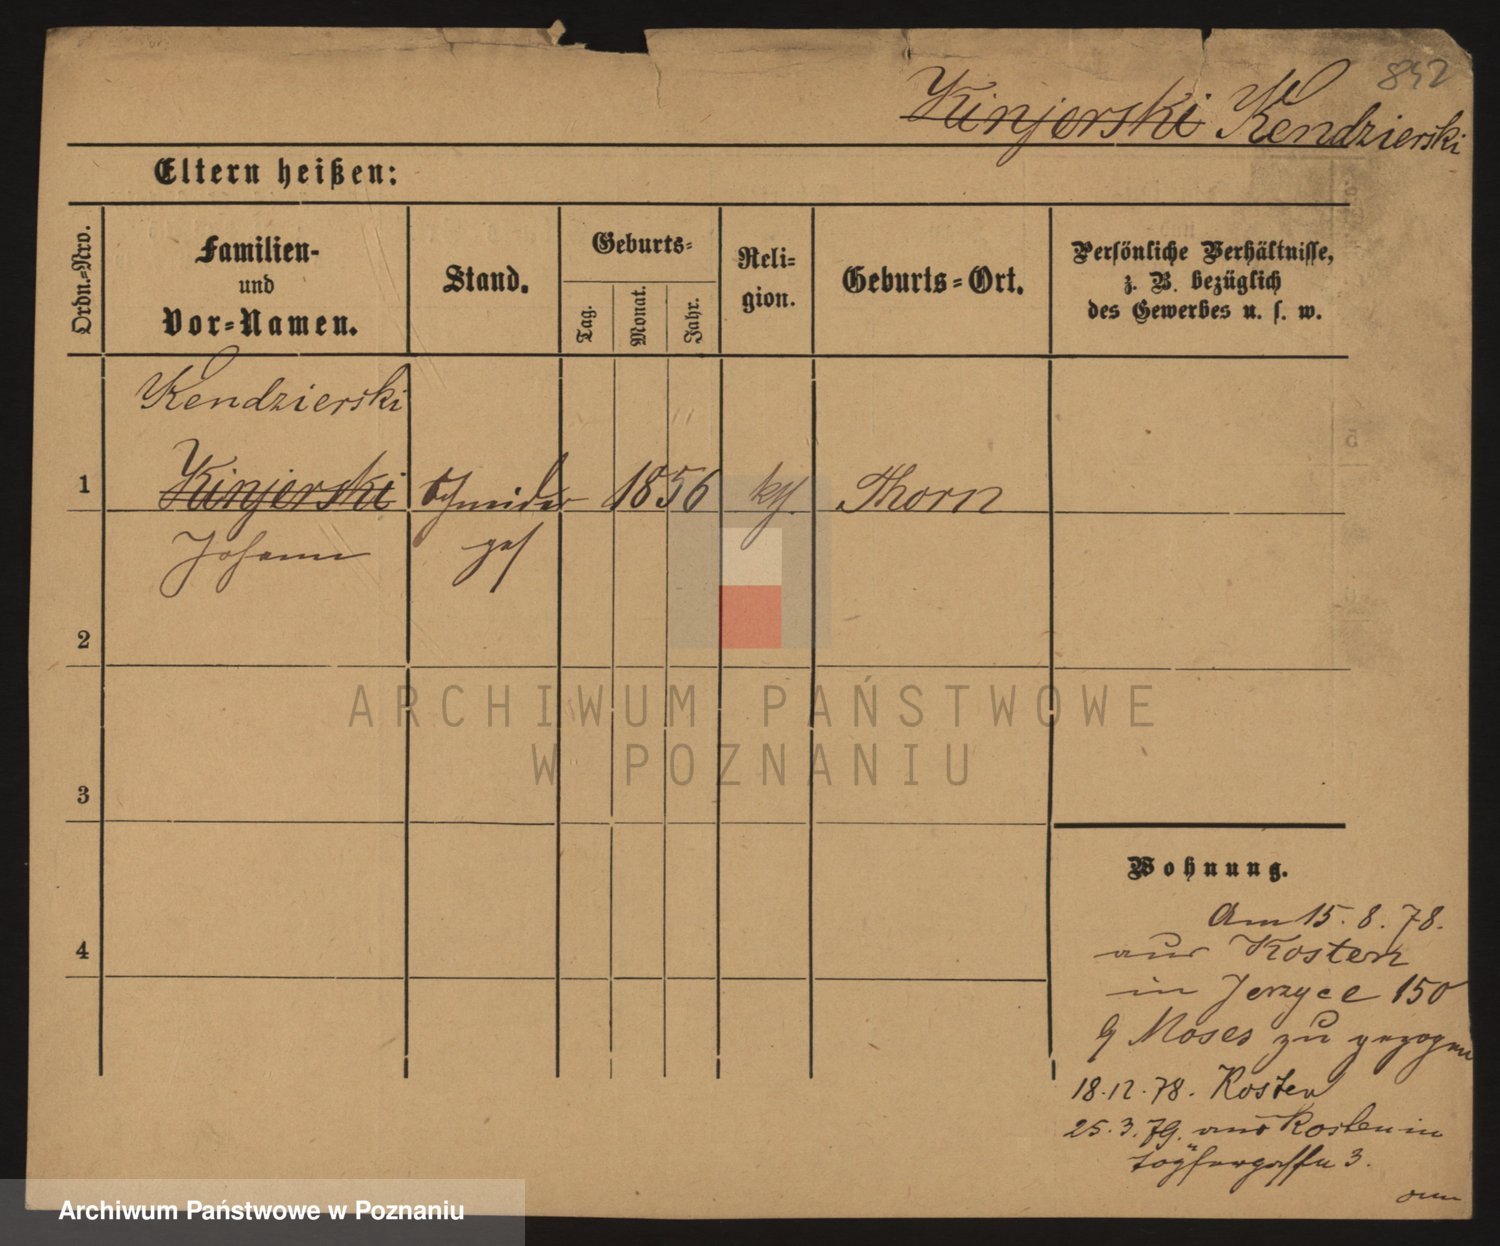 852
Kinjerski Kendzierski
Eltern heißen:
Ordn.-Nro.
Familien-
und
Vor-Namen.
Stand.
Geburts-
Tag.
Monat.
Jahr.
Reli-
gion.
Geburts-Ort.
Persönliche Verhältnisse,
z. B. bezüglich
des Gewerbes u. s. w.
Kendzierski
1 Kinjerski Schneider 1856 kth. Thorn
Johann ges
2
3
4
Wohnung.
Am 15. 8. 78.
aus Kosten
in Jerzyce 150
Moses zu gezogen
18.12.78. Kosten
25.3.79. aus Kosten in
Töpfergasse 3.
ARCHIWUM PAŃSTWOWE
W POZNANIU
Archiwum Państwowe w Poznaniu